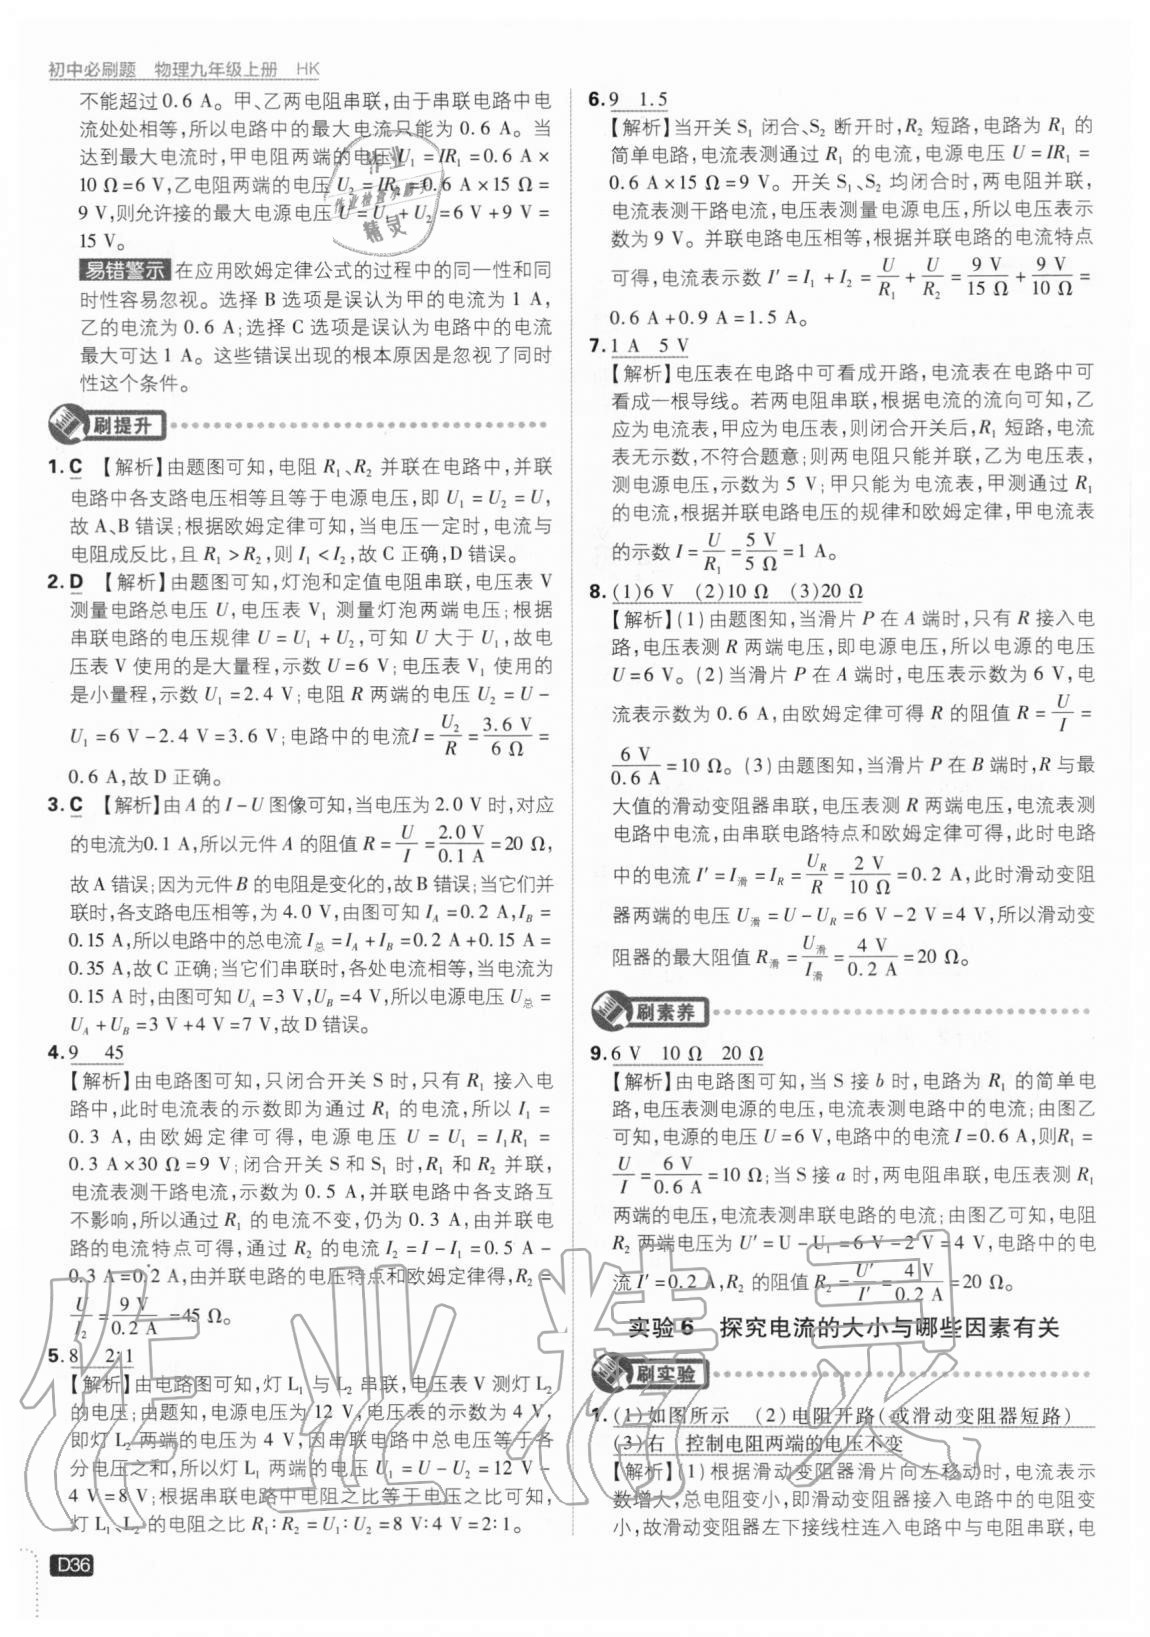 初中必刷题 物理九年级上册 HK
不能超过0.6 A。甲、乙两电阻串联,由于串联电路中电
流处处相等,所以电路中的最大电流只能为0.6 A。当
达到最大电流时,甲电阻两端的电压U₁=IR₁=0.6 A×
10 Ω=6 V,乙电阻两端的电压U₂=IR₂=0.6 A×15 Ω=
9 V,则允许接的最大电源电压U=U₁+U₂=6 V+9 V=
15 V。
易错警示 在应用欧姆定律公式的过程中的同一性和同
时性容易忽视。选择 B 选项是误认为甲的电流为 1 A,
乙的电流为 0.6 A;选择 C 选项是误认为电路中的电流
最大可达 1 A。这些错误出现的根本原因是忽视了同时
性这个条件。
刷提升
1.C 【解析】由题图可知,电阻 R₁、R₂ 并联在电路中,并联
电路中各支路电压相等且等于电源电压,即 U₁=U₂=U,
故 A、B 错误;根据欧姆定律可知,当电压一定时,电流与
电阻成反比,且 R₁>R₂,则 I₁<I₂,故 C 正确,D 错误。
2.D 【解析】由题图可知,灯泡和定值电阻串联,电压表 V
测量电路总电压 U,电压表 V₁ 测量灯泡两端电压;根据
串联电路的电压规律 U=U₁+U₂,可知 U 大于 U₁,故电
压表 V 使用的是大量程,示数 U=6 V;电压表 V₁ 使用的
是小量程,示数 U₁=2.4 V;电阻 R 两端的电压 U₂=U-
U₁=6 V-2.4 V=3.6 V;电路中的电流I=U₂/R=3.6 V/6 Ω=
0.6 A,故 D 正确。
3.C 【解析】由 A 的 I-U 图像可知,当电压为 2.0 V 时,对应
的电流为0.1 A,所以元件 A 的阻值 R=U/I=2.0 V/0.1 A=20 Ω,
故 A 错误;因为元件 B 的电阻是变化的,故 B 错误;当它们并
联时,各支路电压相等,为 4.0 V,由图可知 I_A=0.2 A,I_B=
0.15 A,所以电路中的总电流 I总=I_A+I_B=0.2 A+0.15 A=
0.35 A,故 C 正确;当它们串联时,各处电流相等,当电流为
0.15 A 时,由图可知 U_A=3 V,U_B=4 V,所以电源电压 U总=
U_A+U_B=3 V+4 V=7 V,故 D 错误。
4.9 45
【解析】由电路图可知,只闭合开关 S 时,只有 R₁ 接入电
路中,此时电流表的示数即为通过 R₁ 的电流,所以 I₁=
0.3 A,由欧姆定律可得,电源电压 U=U₁=I₁R₁=
0.3 A×30 Ω=9 V;闭合开关 S 和 S₁ 时,R₁ 和 R₂ 并联,
电流表测干路电流,示数为 0.5 A,并联电路中各支路互
不影响,所以通过 R₁ 的电流不变,仍为 0.3 A,由并联电
路的电流特点可得,通过 R₂ 的电流 I₂=I-I₁=0.5 A-
0.3 A=0.2 A,由并联电路的电压特点和欧姆定律得,R₂=
U/I₂=9 V/0.2 A=45 Ω。
5.8 2:1
【解析】由电路图可知,灯 L₁ 与 L₂ 串联,电压表 V 测灯 L₂
的电压;由题知,电源电压为 12 V,电压表的示数为 4 V,
即灯 L₂ 两端的电压为 4 V,因串联电路中总电压等于各
分电压之和,所以灯 L₁ 两端的电压 U₁=U-U₂=12 V-
4 V=8 V;根据串联电路中电阻之比等于电压之比可知,
灯 L₁、L₂ 的电阻之比 R₁:R₂=U₁:U₂=8 V:4 V=2:1。
D36
6.9 1.5
【解析】当开关 S₁ 闭合、S₂ 断开时,R₂ 短路,电路为 R₁ 的
简单电路,电流表测通过 R₁ 的电流,电源电压 U=IR₁=
0.6 A×15 Ω=9 V。开关 S₁、S₂ 均闭合时,两电阻并联,
电流表测干路电流,电压表测量电源电压,所以电压表示
数为 9 V。并联电路电压相等,根据并联电路的电流特点
可得,电流表示数 I′=I₁+I₂=U/R₁+U/R₂=9 V/15 Ω+9 V/10 Ω=
0.6 A+0.9 A=1.5 A。
7.1 A 5 V
【解析】电压表在电路中可看成开路,电流表在电路中可
看成一根导线。若两电阻串联,根据电流的流向可知,乙
应为电流表,甲应为电压表,则闭合开关后,R₁ 短路,电流
表无示数,不符合题意;则两电阻只能并联,乙为电压表,
测电源电压,示数为 5 V;甲只能为电流表,甲测通过 R₁
的电流,根据并联电路电压的规律和欧姆定律,甲电流表
的示数 I=U/R₁=5 V/5 Ω=1 A。
8.(1)6 V (2)10 Ω (3)20 Ω
【解析】(1)由题图知,当滑片 P 在 A 端时,只有 R 接入电
路,电压表测 R 两端电压,即电源电压,所以电源的电压
U=6 V。(2)当滑片 P 在 A 端时,电压表示数为 6 V,电
流表示数为 0.6 A,由欧姆定律可得 R 的阻值 R=U/I=
6 V/0.6 A=10 Ω。(3)由题图知,当滑片 P 在 B 端时,R 与最
大值的滑动变阻器串联,电压表测 R 两端电压,电流表测
电路中电流,由串联电路特点和欧姆定律可得,此时电路
中的电流 I′=I滑=I_R=U_R/R=2 V/10 Ω=0.2 A,此时滑动变阻
器两端的电压 U滑=U-U_R=6 V-2 V=4 V,所以滑动变
阻器的最大阻值 R滑=U滑/I滑=4 V/0.2 A=20 Ω。
刷素养
9.6 V 10 Ω 20 Ω
【解析】由电路图可知,当 S 接 b 时,电路为 R₁ 的简单电
路,电压表测电源的电压,电流表测电路中的电流;由图乙
可知,电源的电压 U=6 V,电路中的电流 I=0.6 A,则R₁=
U/I=6 V/0.6 A=10 Ω;当 S 接 a 时,两电阻串联,电压表测 R₁
两端的电压,电流表测串联电路的电流;由图乙可知,电阻
R₂ 两端电压为 U′=U-U₁=6 V-2 V=4 V,电路中的电
流 I′=0.2 A,R₂ 的阻值 R₂=U′/I′=4 V/0.2 A=20 Ω。
实验 6 探究电流的大小与哪些因素有关
刷实验
1.(1)如图所示 (2)电阻开路(或滑动变阻器短路)
(3)右 控制电阻两端的电压不变
【解析】(1)根据滑动变阻器滑片向左移动时,电流表示
数增大,总电阻变小,即滑动变阻器接入电路中的电阻变
小,故滑动变阻器左下接线柱连入电路中与电阻串联,电
作业精灵